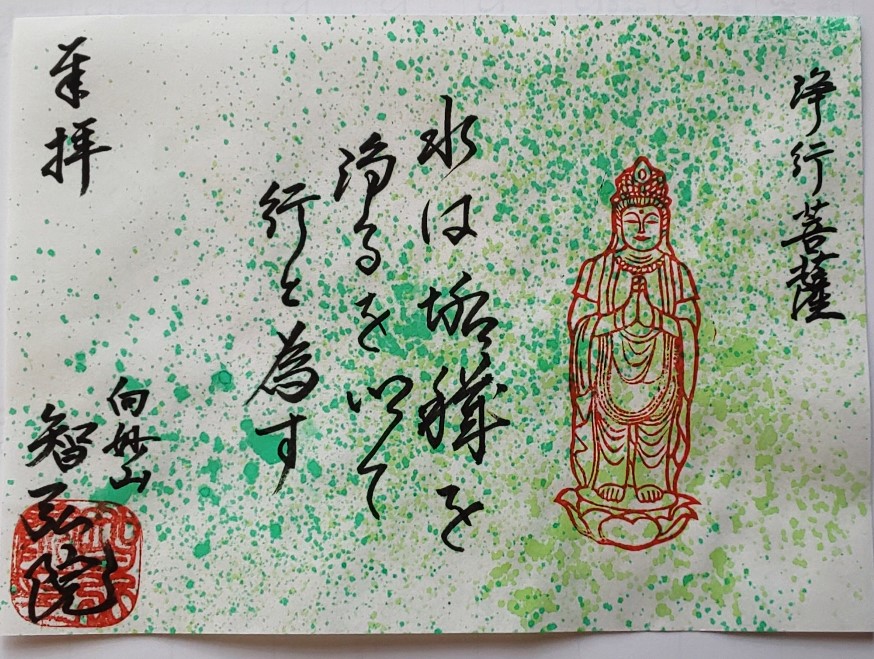 浄行菩薩
水は垢穢を
浄るを以て
行と為す
奉拝
向妙山
智弘院